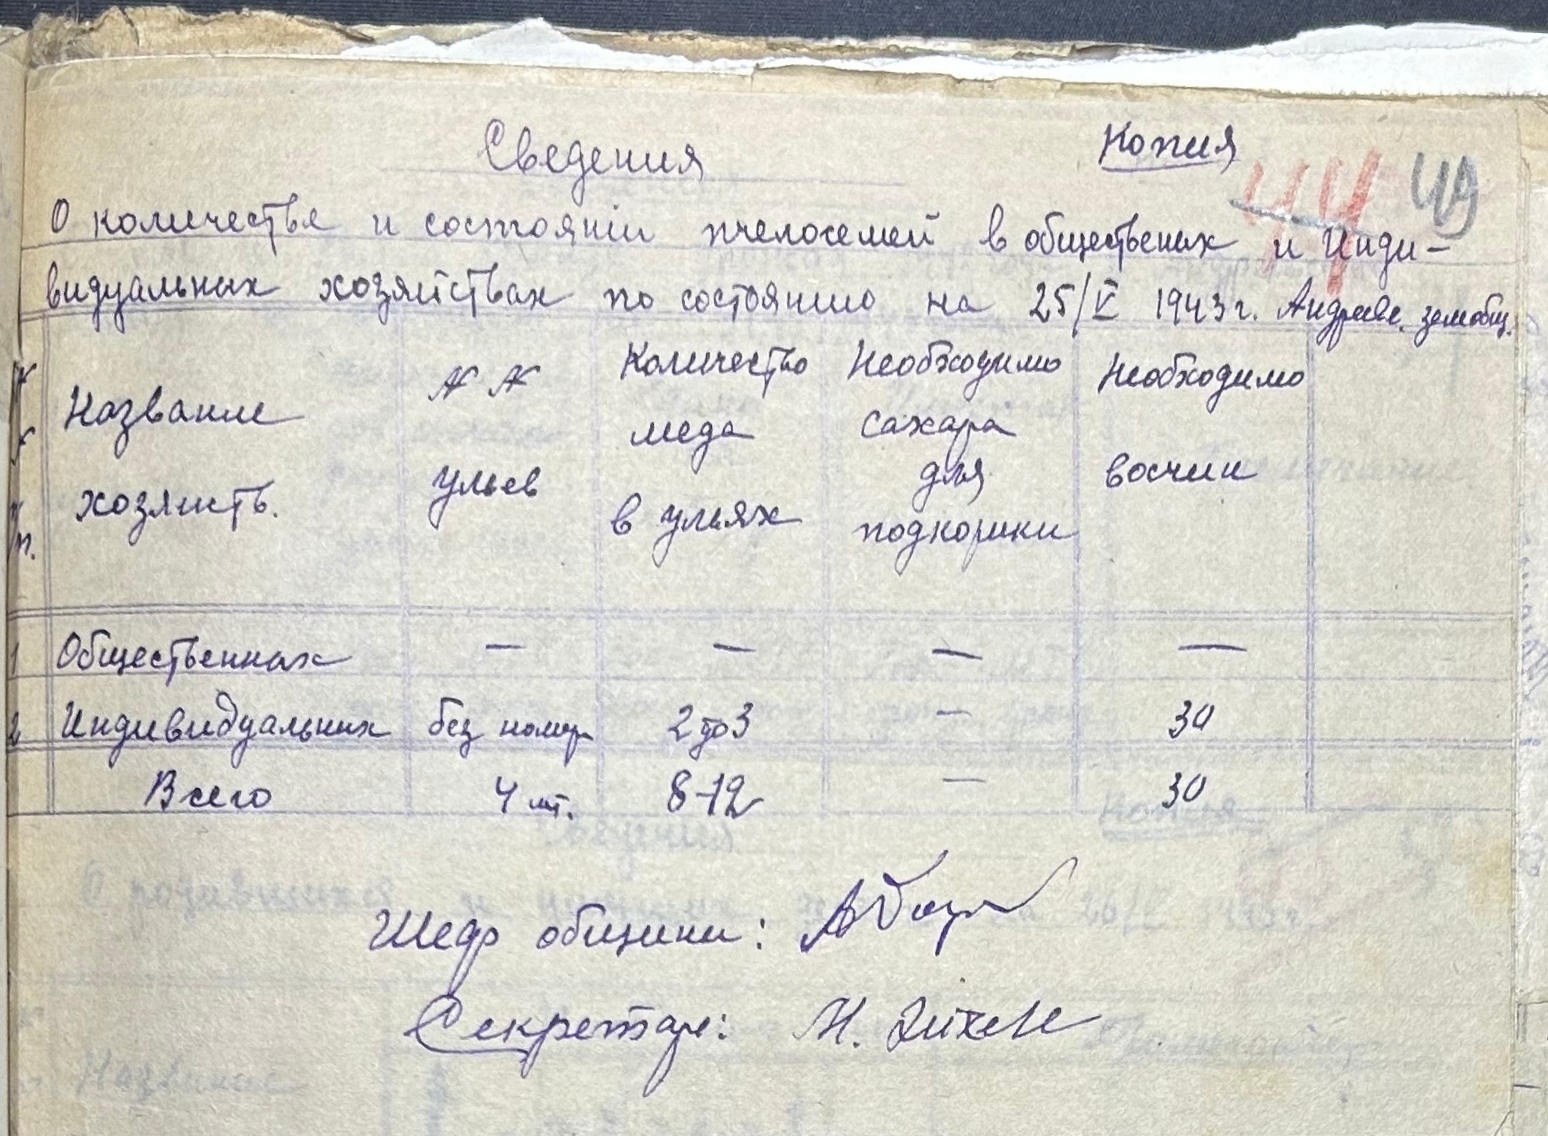 Сведения
Копия
44 49
О количестве и состоянии пчелосемей в общественых и Инди-
видуальных хозяйствах по состоянию на 25/V 1943 г. Андреев. земобщ.
№ № п/п.
Название хозяиств.
№ № ульев
Количество меда в ульях
Необходимо сахара для подкормки
Необходимо вощин
1 Общественных — — — —
2 Индивидуальных без номер 2 до 3 — 30
Всего 4 шт. 8-12 — 30
Шеф общины:
Секретарь: Н.